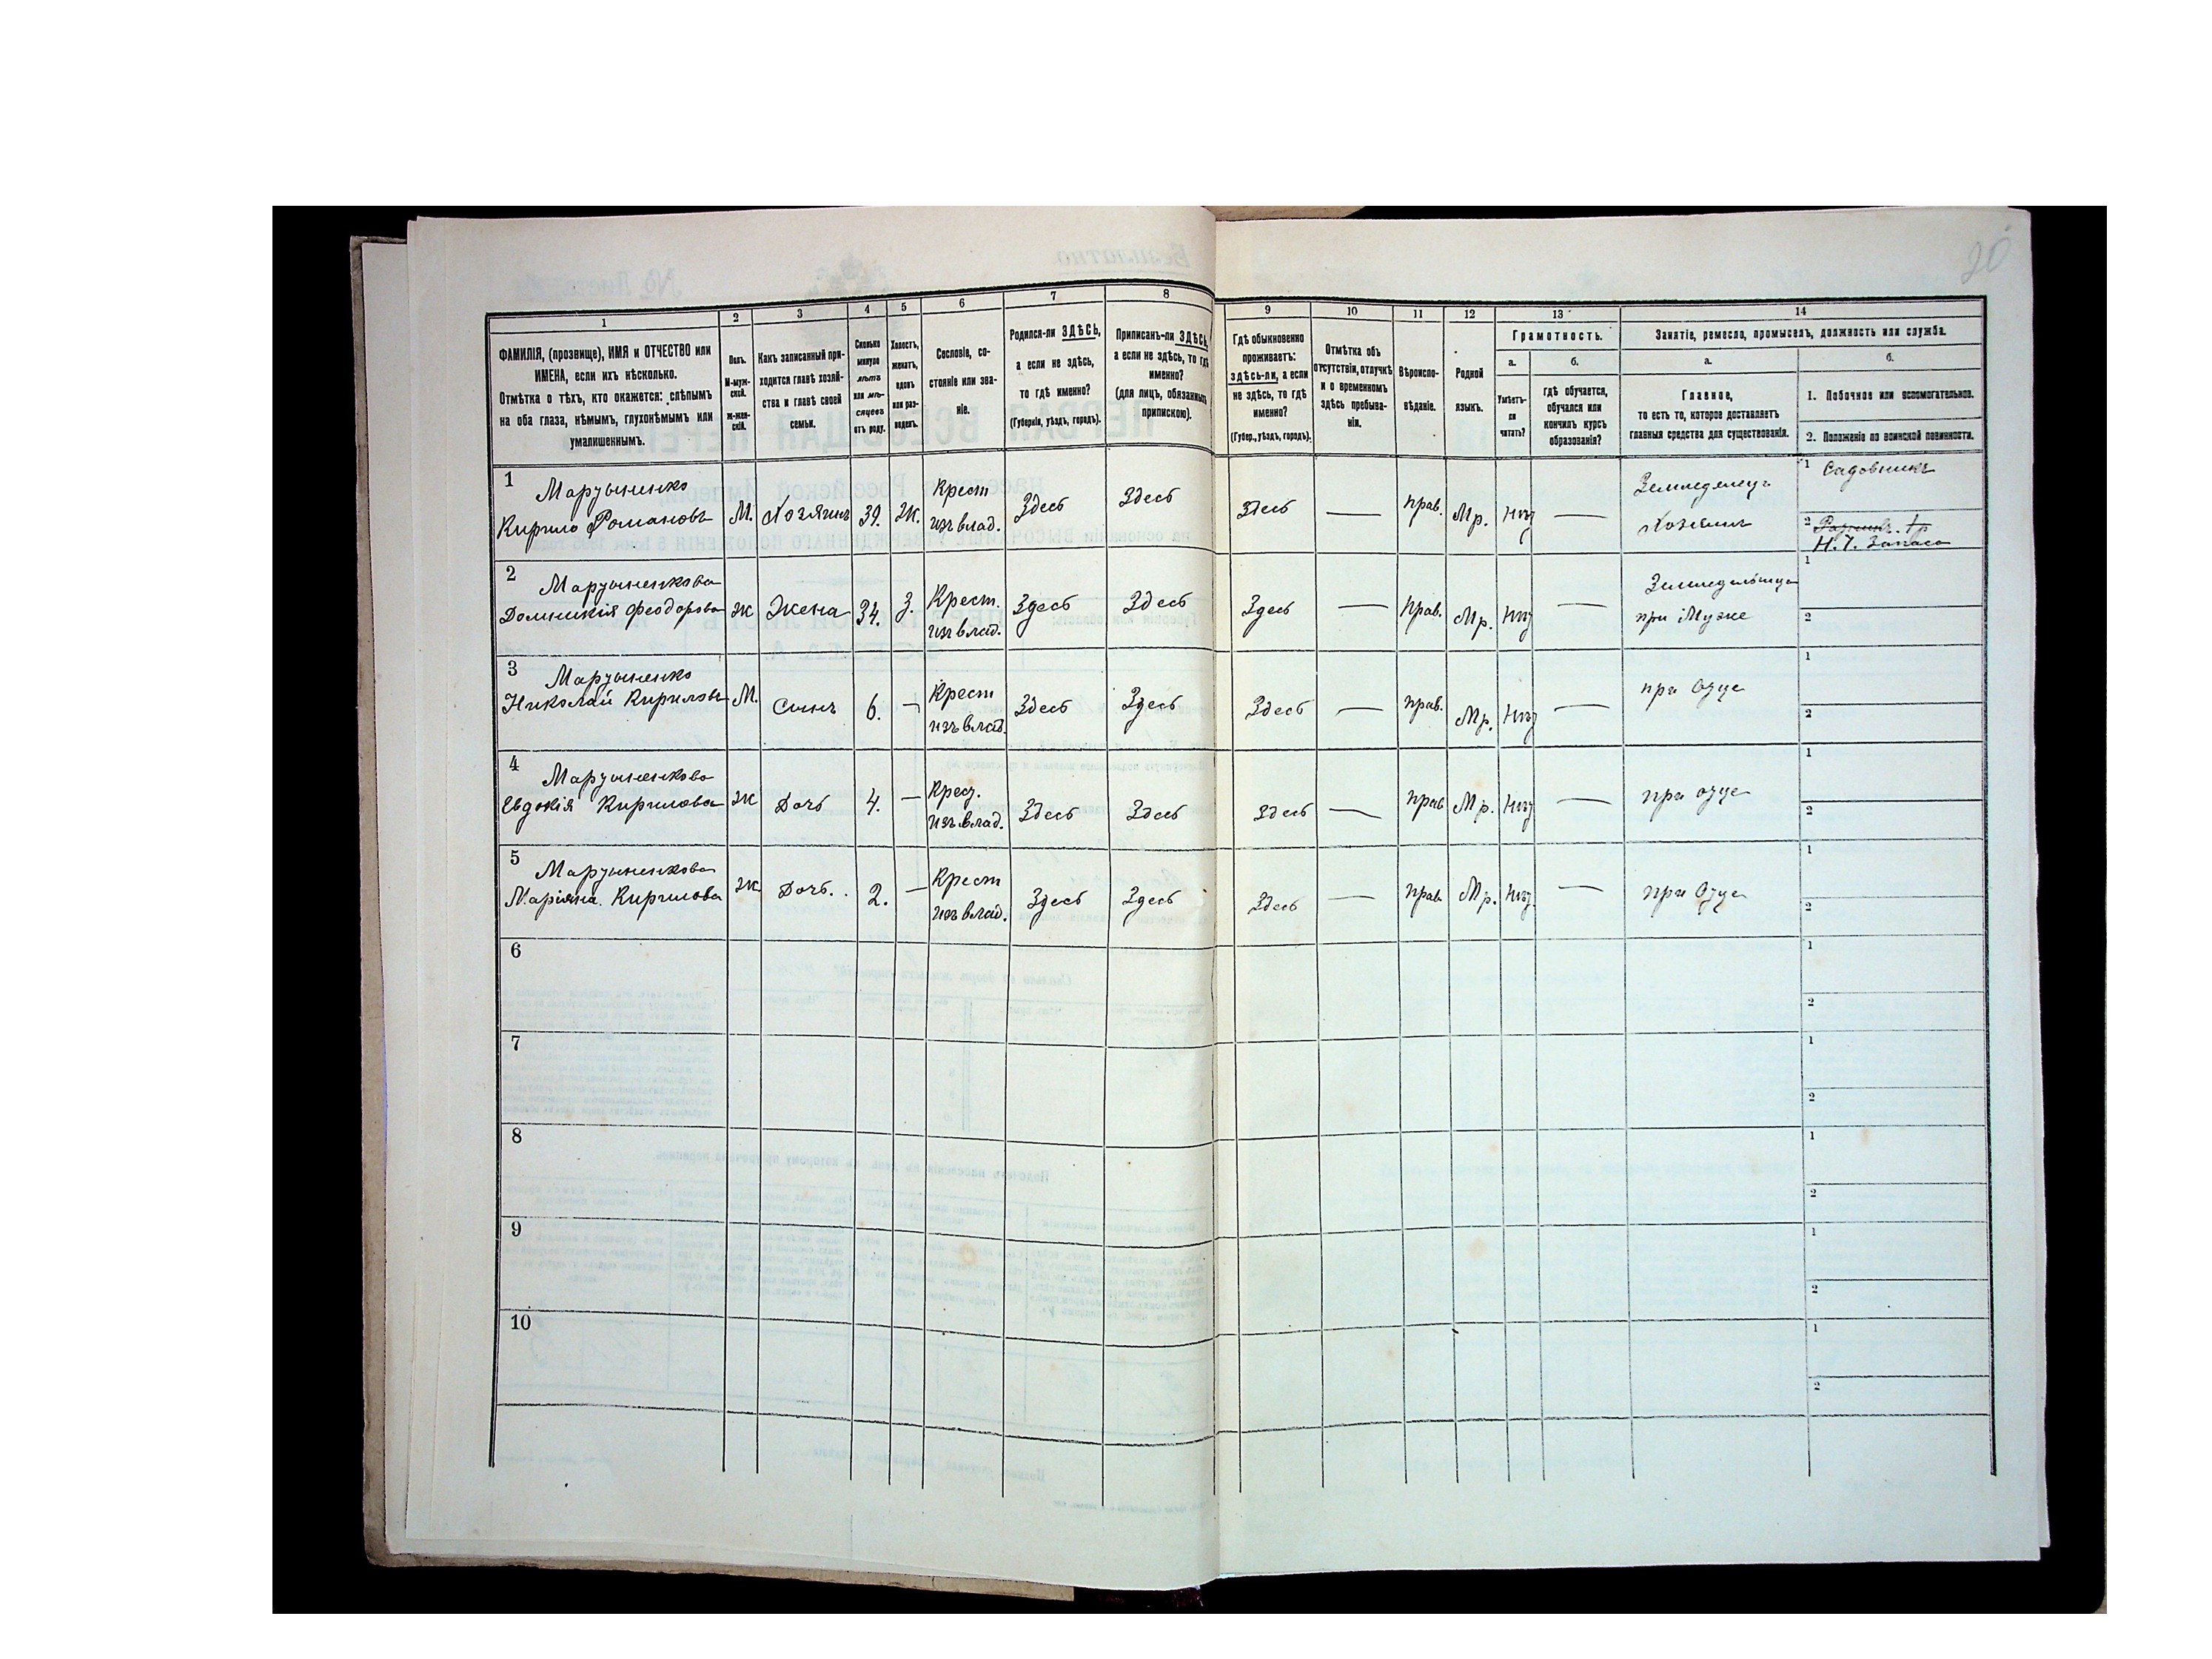 20
1
2
3
4
5
6
7
8
9
10
11
12
13
14
ФАМИЛІЯ, (прозвище), ИМЯ и ОТЧЕСТВО или
ИМЕНА, если ихъ нѣсколько.
Отмѣтка о тѣхъ, кто окажется: слѣпымъ
на оба глаза, нѣмымъ, глухонѣмымъ или
умалишеннымъ.
Полъ.
М-муж-
ской.
Ж-жен-
скій.
Какъ записанный при-
ходится главѣ хозяй-
ства и главѣ своей
семьи.
Сколько
минуло
лѣтъ
или мѣ-
сяцевъ
отъ роду.
Холостъ,
женатъ,
вдовъ
или раз-
веденъ.
Сословіе, со-
стояніе или зва-
ніе.
Родился-ли ЗДѢСЬ,
а если не здѣсь,
то гдѣ именно?
(Губернія, уѣздъ, городъ).
Приписанъ-ли ЗДѢСЬ,
а если не здѣсь, то гдѣ
именно?
(для лицъ, обязанныхъ
припискою).
Гдѣ обыкновенно
проживаетъ:
здѣсь-ли, а если
не здѣсь, то гдѣ
именно?
(Губер., уѣздъ, городъ).
Отмѣтка объ
отсутствіи, отлучкѣ
и о временномъ
здѣсь пребыва-
ніи.
Вѣроиспо-
вѣданіе.
Родной
языкъ.
Грамотность.
а.
Умѣетъ-
ли
читать?
б.
гдѣ обучается,
обучался или
кончилъ курсъ
образованія?
Занятіе, ремесло, промыселъ, должность или служба.
а.
Главное,
то есть то, которое доставляетъ
главныя средства для существованія.
б.
1. Побочное или вспомогательное.
2. Положеніе по воинской повинности.
1 Марущенко
Кирило Романовъ
М.
Хозяинъ
39.
Ж.
Крест
изъ влад.
Здесь
Здесь
Здесь
—
прав.
Мр.
Нѣт
—
Земледелецъ
Хозяинъ
1 Садовникъ
2
Н. Ч. Запаса
2 Марущенкова
Домникія Феодорова
Ж
Жена
34.
З.
Крест.
изъ влад.
Здесь
Здесь
Здесь
—
прав.
Мр.
Нѣт
—
Земледельица
при Муже
1
2
3 Марущенко
Николай Кириловъ
М.
Сынъ
6.
—
Крест
изъ влад.
Здесь
Здесь
Здесь
—
прав.
Мр.
Нѣт
—
при Отце
1
2
4 Марущенкова
Евдокія Кирилова
Ж
Дочь
4.
—
Крест.
изъ влад.
Здесь
Здесь
Здесь
—
прав
Мр.
Нѣт
—
при отце
1
2
5 Марущенкова
Маріяна. Кирилова
Ж.
Дочь.
2.
—
Крест
изъ влад.
Здесь
Здесь
Здесь
—
прав.
Мр.
Нѣт.
—
при Отце
1
2
6
1
2
7
1
2
8
1
2
9
1
2
10
1
2